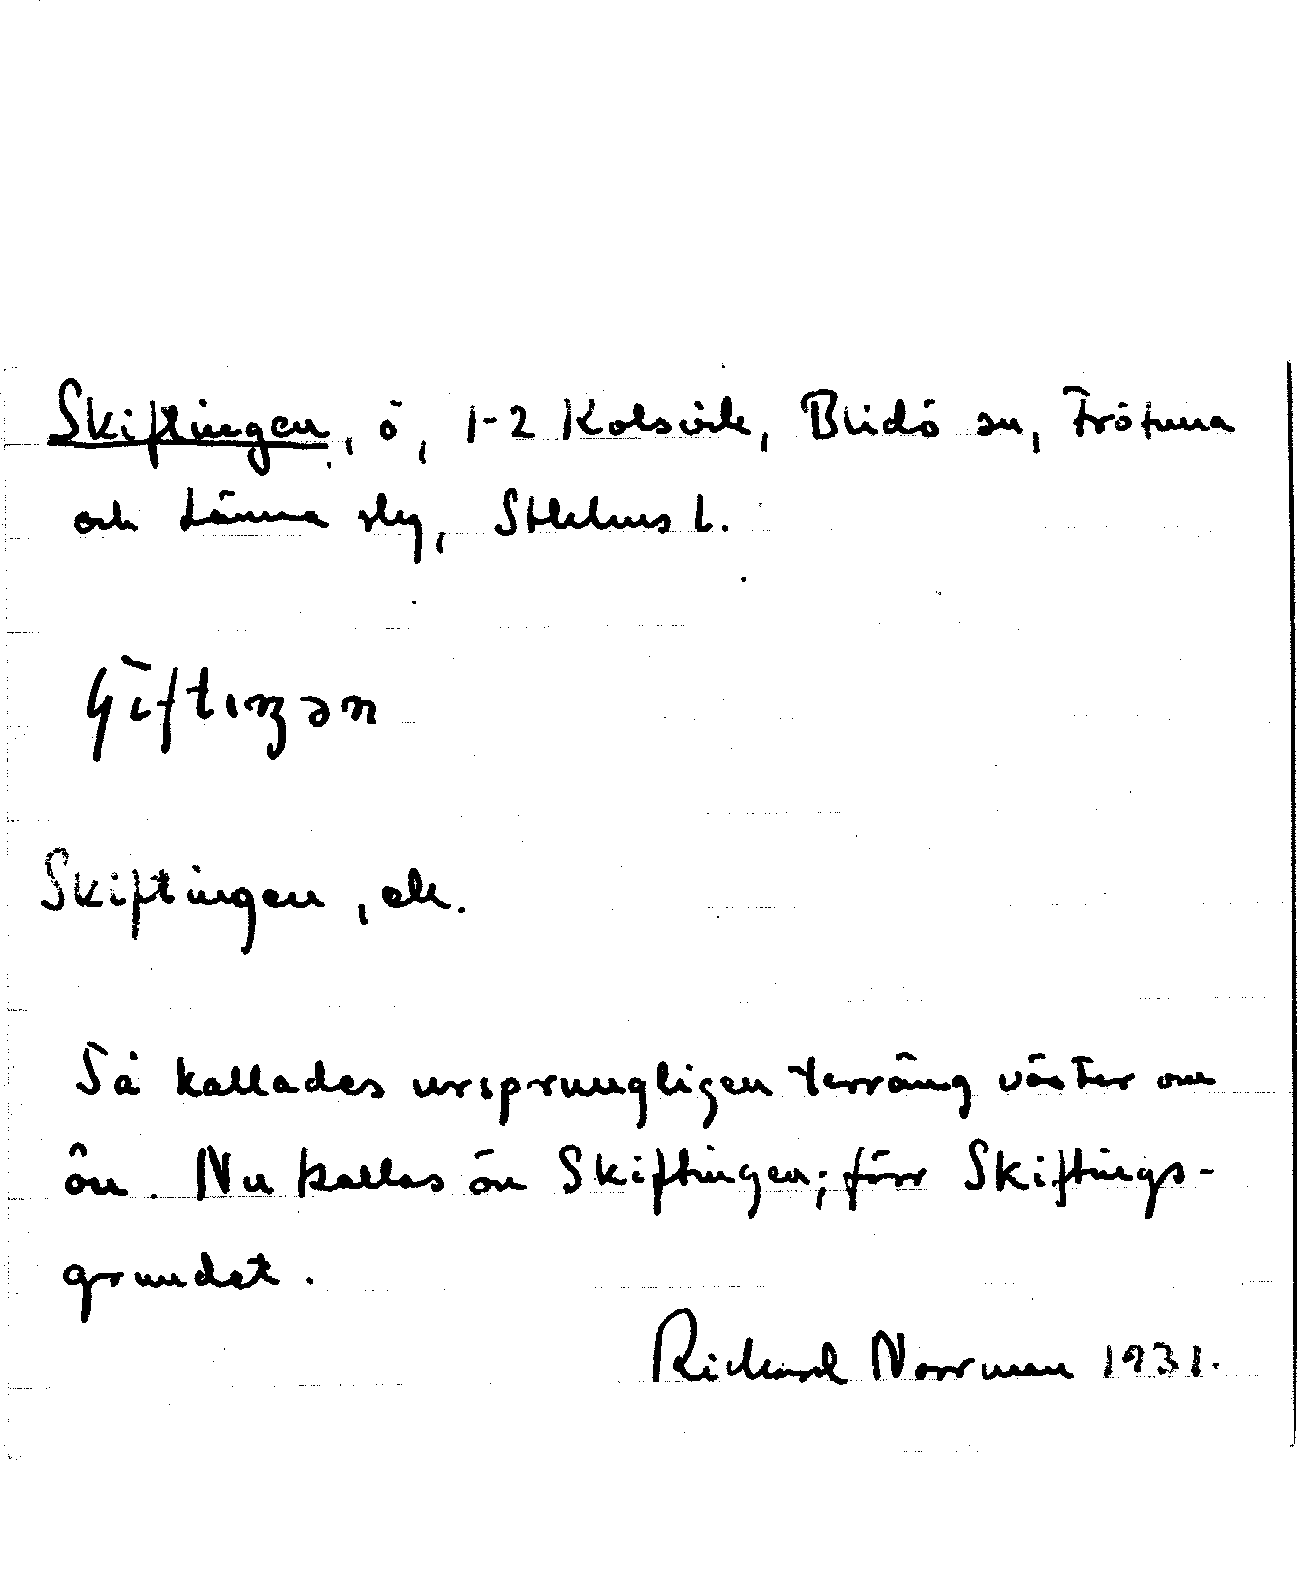 Skiftingen, ö, 1-2 Kolsvik, Blidö sn, Frötuna
och Länna slg, Sthlms l.
Skiftingen, ek.
Så kallades ursprungligen terräng väster om
ön. Nu kallas ön Skiftingen; förr Skiftings-
grundet.
Rickard Norrman 1931.